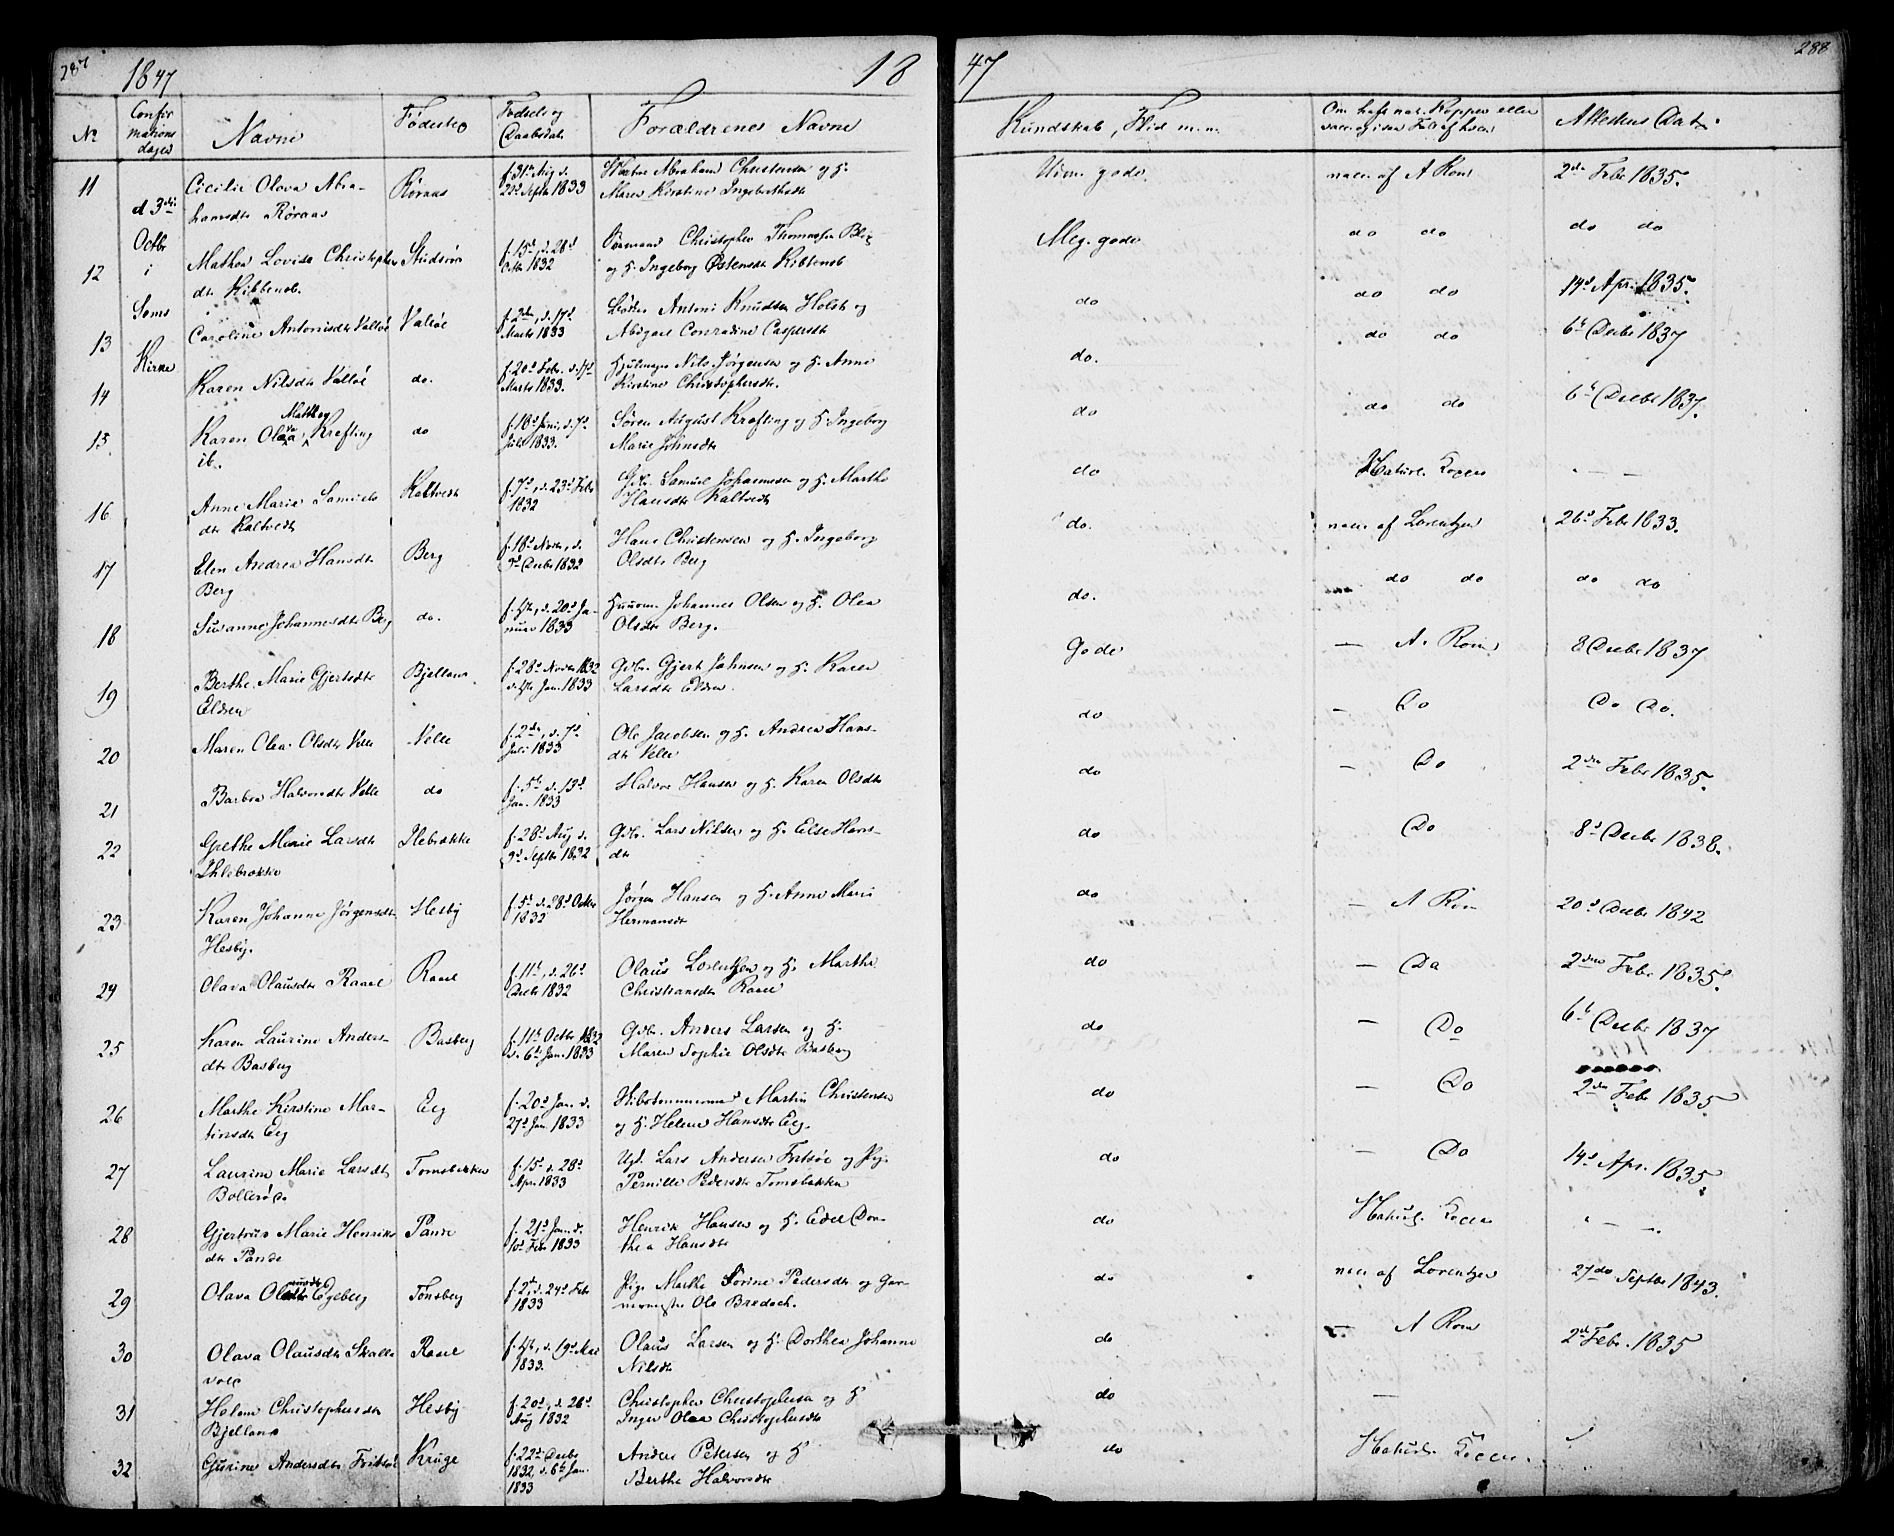 287
1847
18
47
288
No
Confir
mations
dagen
Navne
Fødested
Fødsels og
Daabsdat.
Forældrenes Navne
Kundskab, Flid m.m.
Om havt nat. Kopper eller
vaccineret
Attestens Dat.
d 3die
Octbr
i
Sems
Kirke
11
Cicilie Olava Abra-
hamsdtr Røraas
Røraas
f. 31te Aug. d.
22d Septb 1833
Abraham Christensen og H.
Maren Kirstine Ingebretsdtr
Uim. gode.
vacc. af A Rom
2den Febr 1835.
12
Mathea Lovise Christophers
dtr Kibbenob.
f. 15d, d. 28d
Octb 1832
Christopher Thomassen
og H. Ingeborg Østensdtr Kibbenob
Meg. gode
do do
do do
13
Caroline Antonisdtr Valløe
Valløe
f. 2den, d. 17d
Marts 1833
Antoni Knudsen Holst og
Abigael Conradine Caspersdtr
do
do do
14d Apr. 1835.
14
Karen Nilsdtr Valløe
do.
f. 20d Febr. d. 17d
Marts 1833.
Hjulmager Nils Jørgensen og H. Anne
Kirstine Christophersdtr.
do.
do do
6t Decbr 1837
15
Karen Olava Mathea Krefting
ib.
do
f. 18d Juni, d. 7d
Juli 1833.
Søren August Krefting og H. Ingeborg
Marie Johnsdtr
do
do do
6t Decbr 1837.
16
Anne Marie Samuels
dtr Kaltvedt
Kaltvedt
f. 7d, d. 23d Febr
1832
Gdbr. Samuel Johannesen og H. Marthe
Hansdtr Kaltvedt
do
Naturl. Kopper
- -
17
Elen Andrea Hansdtr
Berg
Berg
f. 18d Novbr, d.
9d Decbr 1832
Hans Christensen og H. Ingeborg
Olsdtr Berg
do.
vacc. af Lorentzen
26d Febr 1833.
18
Susanne Johannesdtr Berg
do.
f. 4de, d. 20d Ja-
nuar 1833
Huusm. Johannes Olsen og H. Olea
Olsdtr Berg.
do.
do do
do do
19
Berthe Marie Gjertsdtr
Eldsen
Bjelland
f. 28d Novbr 1832
d. 4de Jan. 1833
Gdbr. Gjert Johnsen og H. Karen
Larsdtr Eldsen.
Gode
- A. Rom
8 Decbr 1837
20
Maren Olea Olsdtr Velle
Velle
f. 2den, d. 7d
Juli 1833
Ole Jacobsen og H. Andrea Hans-
dtr Velle
do
- Do
Do Do.
21
Barbra Halvorsdtr Velle
do
f. 5te d. 13d
Jan. 1833
Halvor Hansen og H. Karen Olsdtr
do
- Do
2den Febr 1835.
22
Grethe Marie Larsdtr
Ihlebrække
Ilebrække
f. 28d Aug d.
9d Septbr 1832
Gdbr. Lars Nilsen og H. Else Hans-
dtr
do
Do
8d Decbr 1838.
23
Karen Johanne Jørgensdtr
Hesby.
Hesby
f. 5d d. 28d Octbr
1832
Jørgen Hansen og H. Anne Marie
Hermansdtr
do
- A Rom
20d Decbr 1842
24
Olava Olausdtr Raael
Raael
f. 11d, d. 26d
Decbr 1832
Olaus Lorentzen og H. Marthe
Christiansdtr Raael
do
- Do
2den Febr 1835.
25
Karen Laurine Anders-
dtr Basberg
Basberg
f. 11te Octbr 1832
d. 6te Jan. 1833
Gdbr. Anders Larsen og H.
Maren Sophie Olsdtr Basberg
do
- Do
6te Decbr 1837
26
Marthe Kirstine Mar-
tinsdtr Eeg
Eeg
f. 20d Jan. d.
27d Jan. 1833
Skibstømmermd Martin Christensen
og H. Helene Hansdtr Eeg.
do
- Do
2den Febr 1835
27
Laurine Marie Larsdtr
Tomsbakken
f. 15d d. 28d
Apr. 1833
Ugd. Lars Andersen og Pig.
Pernille Pedersdtr Tomsbakken
do
- Do
14d Apr. 1835.
28
Gjertrud Marie Henriks
dtr Pande
Pande
f. 21d Jan. d.
10d Febr 1833
Henrik Hansen og H. Edel Dor-
thea Hansdtr
do
Naturl. Kopper
- -
29
Olava Olausdtr Egeberg
Tønsberg
f. 2d, d. 24d Febr
1833
Pige Marthe Sorine Pedersdtr og Gar-
vermester Ole Bredoch.
do
vacc. af Lorentzen
27de Septbr 1843.
30
Olava Olausdtr Skalle
vold
Raael
f. 4de, d. 19d Mai
1833.
Olaus Larsen og H. Dorthea Johanne
Nilsdtr
do
- A Rom
2d Febr. 1835
31
Helene Christophersdtr
Bjelland
Hesby
f. 20d, d. 26d
Aug 1832
Christopher Christophersen og H
Inger Olea Christophersdtr
do
-
32
Gurine Andersdtr
Kruge
f. 22d Decbr
1832, d. 6te Jan.
1833
Anders Petersen og H
Berthe Halvorsdtr
do
Naturl. Kopper.